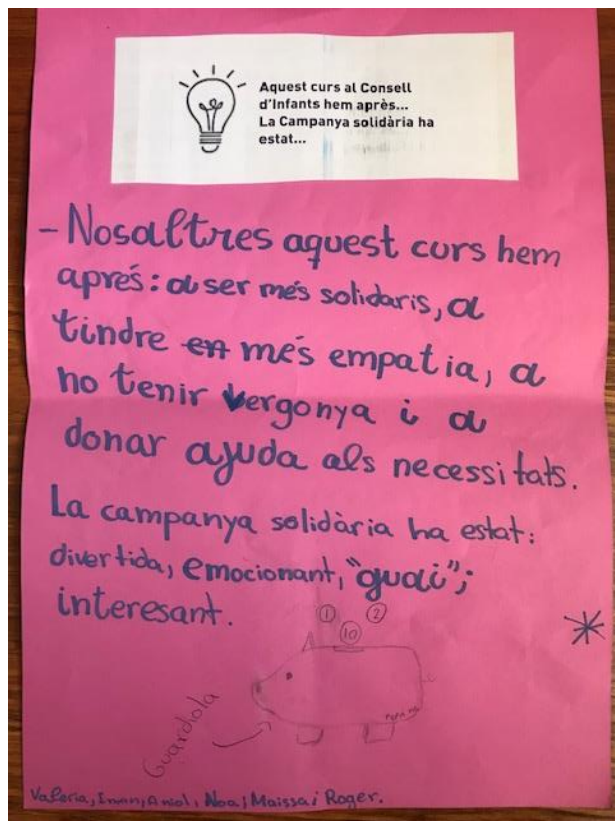 Aquest curs al Consell
d'Infants hem après...
La Campanya solidària ha
estat...
- Nosaltres aquest curs hem
aprés: a ser més solidaris, a
tindre en més empatia, a
no tenir vergonya i a
donar ajuda als necessitats.
La campanya solidària ha estat:
divertida, emocionant, "guai";
interesant.
1 10 2
Guardiola
Valeria, Iman, Aniol, Noa, Maissa i Roger.